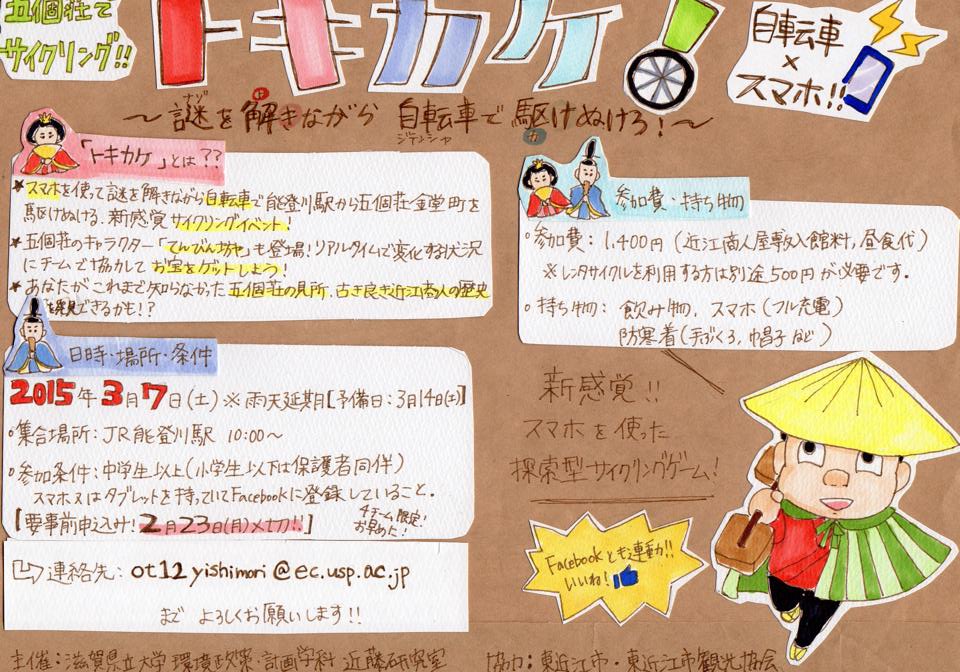 五個荘で
サイクリング!!
トキカケ!
自転車
×
スマホ!!
～謎を解きながら 自転車で駆けぬけろ!～
ナゾ
ト
ジテンシャ
カ
「トキカケ」とは??
★スマホを使って謎を解きながら自転車で能登川駅から五個荘金堂町を
駆けぬける、新感覚サイクリングイベント!
★五個荘のキャラクター「てんびん坊や」も登場!リアルタイムで変化する状況
にチームで協力してお宝をゲットしよう!
★あなたがこれまで知らなかった五個荘の見所、古き良き近江商人の歴史
を発見できるかも!?
日時・場所・条件
2015年3月7日(土)※雨天延期[予備日:3月14日(土)]
○集合場所:JR能登川駅 10:00～
○参加条件:中学生以上(小学生以下は保護者同伴)
スマホ又はタブレットを持っていてFacebookに登録していること。
[要事前申込み!2月23日(月)〆切!!]
4チーム限定!
お早めに!
連絡先:ot12yishimori@ec.usp.ac.jp
まで よろしくお願いします!!
参加費・持ち物
○参加費:1,400円(近江商人屋敷入館料,昼食代)
※レンタサイクルを利用する方は別途500円が必要です。
○持ち物:飲み物、スマホ(フル充電)
防寒着(手ぶくろ、帽子など)
新感覚!!
スマホを使った
探索型サイクリングゲーム!
Facebookとも連動!!
いいね!
主催:滋賀県立大学 環境政策・計画学科 近藤研究室
協力:東近江市・東近江市観光協会